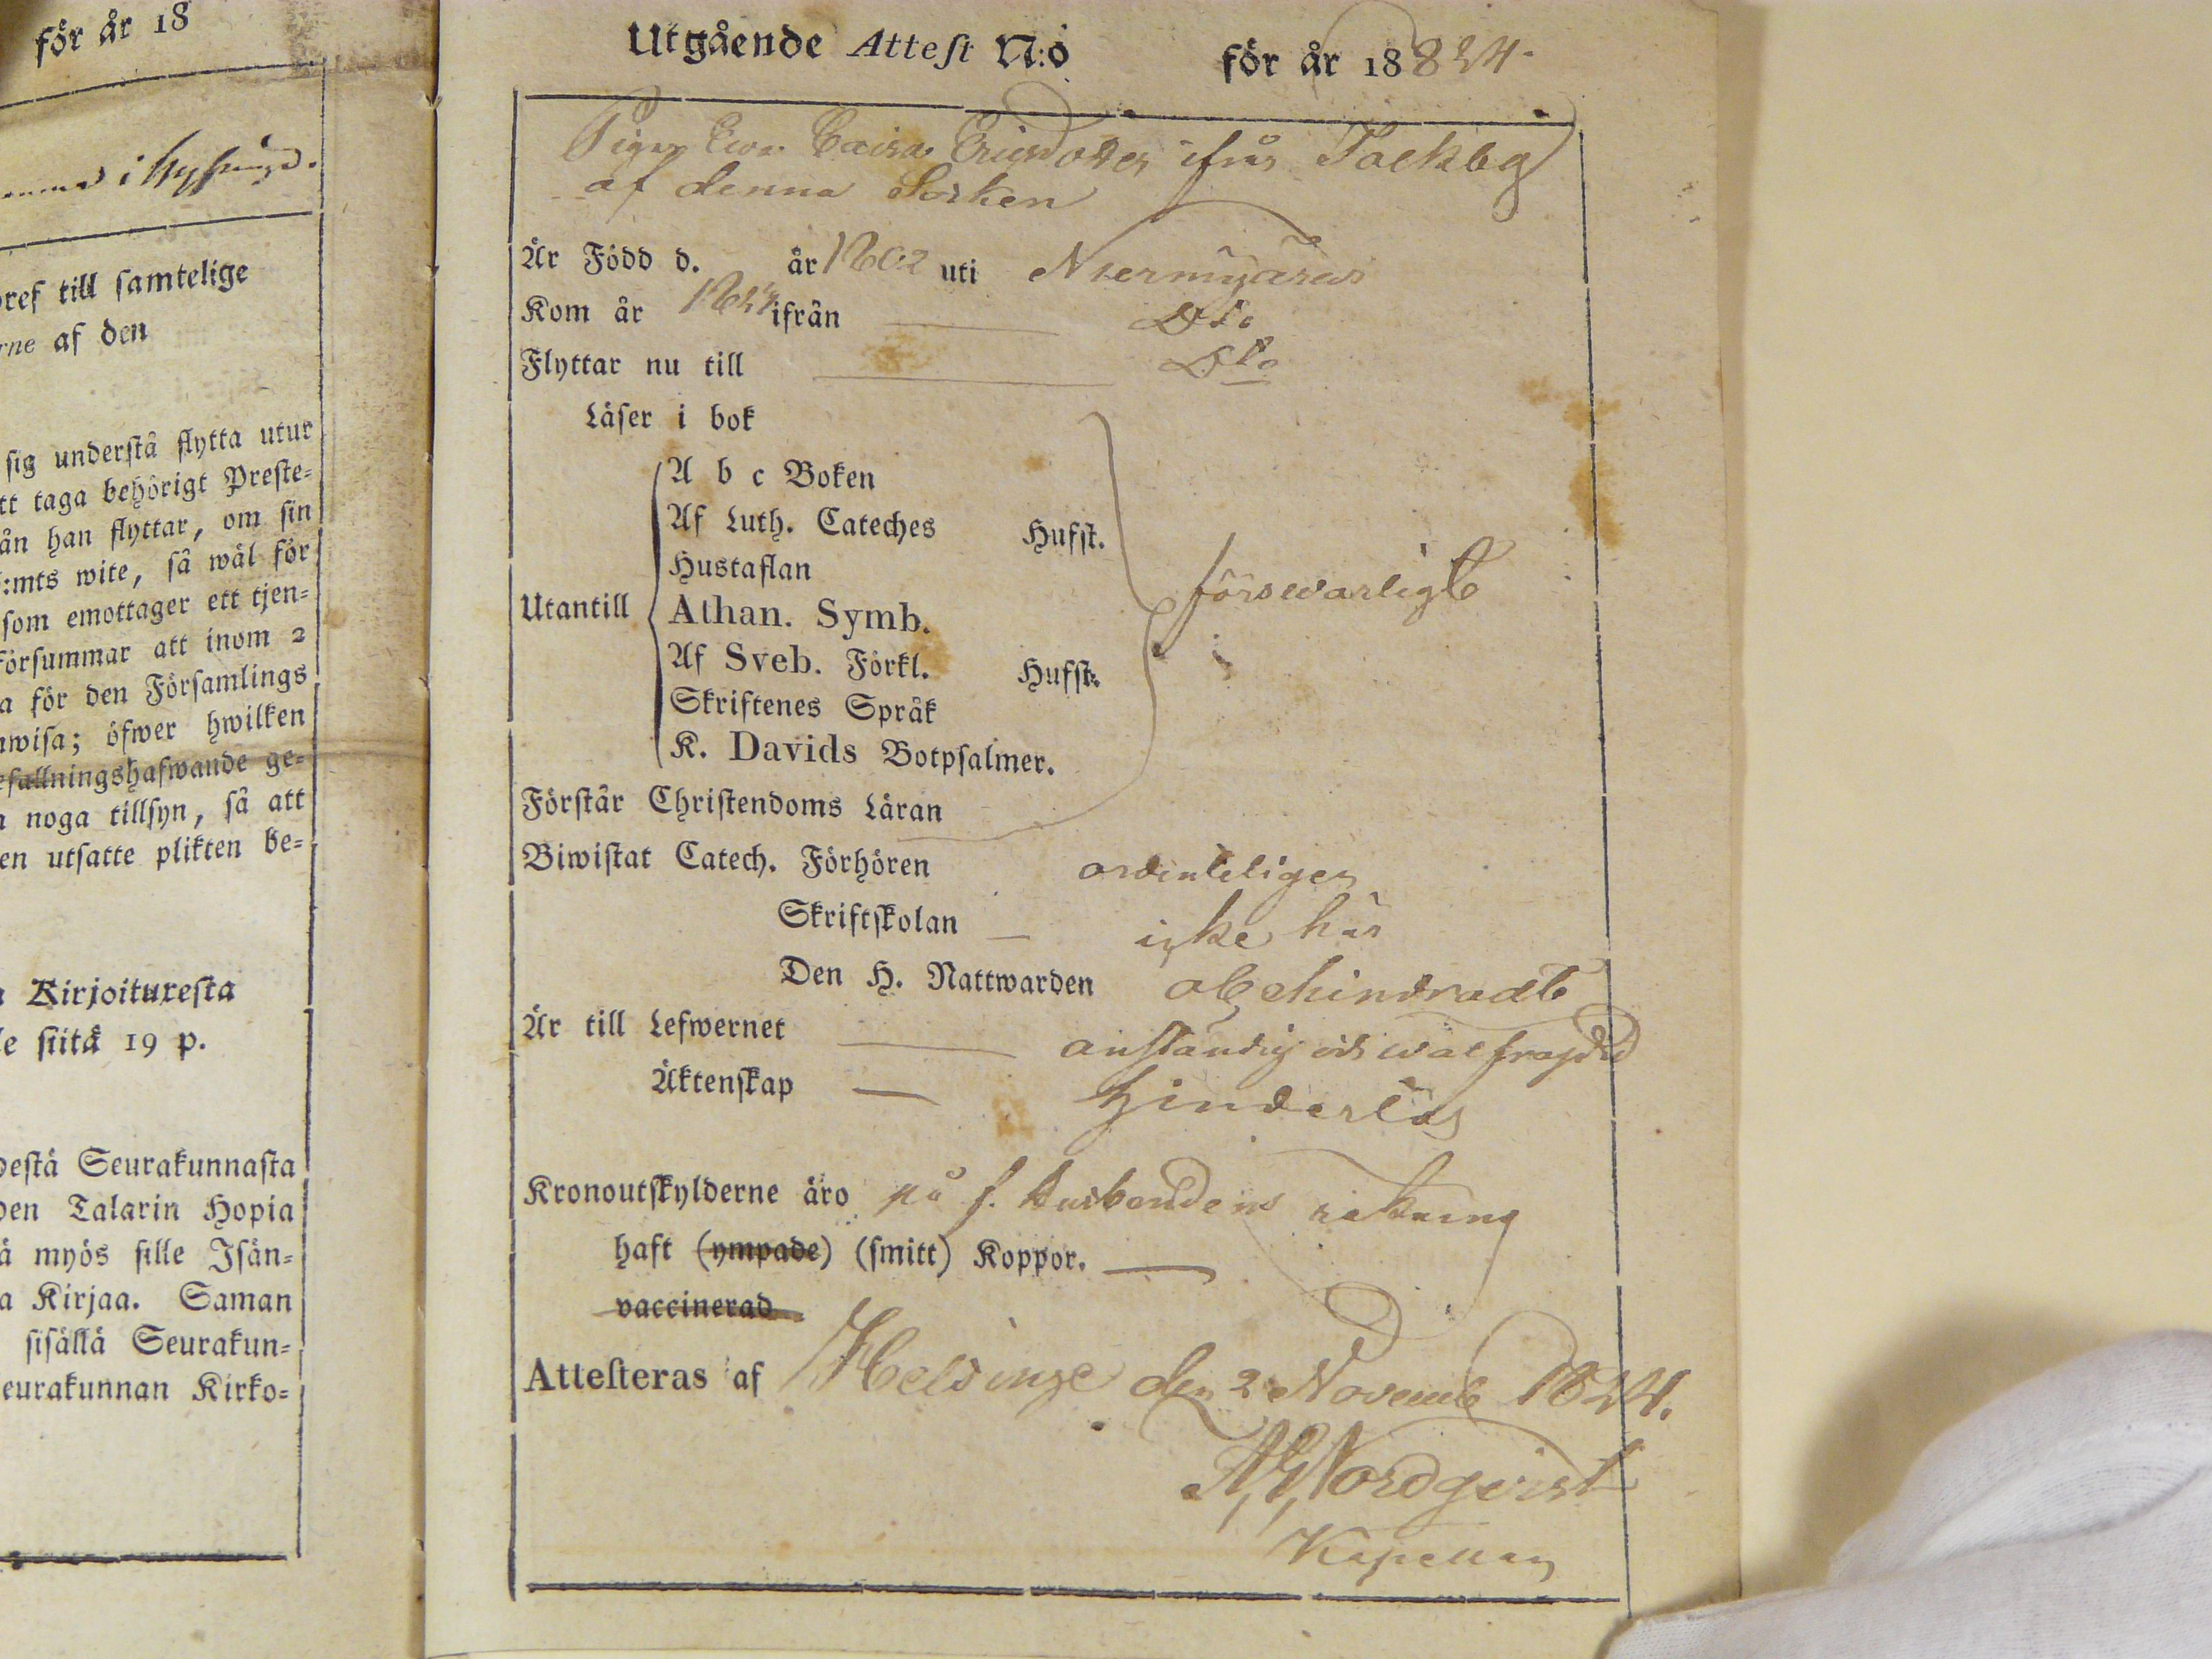 för år 18
i
bref till samtelige
rne af den
sig understå flytta utur
tt taga behörigt Preste-
ån han flyttar, om sin
:mts wite, så wäl för
som emottager ett tjen-
försummar att inom 2
a för den Församlings
wisa; öfwer hwilken
efallningshafwande ge-
noga tillsyn, så att
en utsatte plikten be-
Kirjoituxesta
le siitä 19 p.
destä Seurakunnasta
den Talarin Hopia
ä myös sille Isän-
a Kirjaa. Saman
sisällä Seurakun-
eurakunnan Kirko-
Utgående Attest N:o för år 18824.
Pigan Ewa Caisa Ericsdotter ifrån Packbg
af denna Socken
Är Född d. år 1802 uti Nurmijärwi
Kom år 1824 ifrån Dto
Flyttar nu till Dto
Läser i bok
A b c Boken
Af Luth. Cateches Hufst.
Hustaflan
Utantill Athan. Symb. förswarligt
Af Sveb. Förkl. Hufst.
Skriftenes Språk
K. Davids Botpsalmer.
Förstår Christendoms Läran
Biwistat Catech. Förhören ordenteligen
Skriftskolan — icke här
Den H. Nattwarden obehindradt
Är till Lefwernet anständig och wälfrejdad
Äktenskap — hinderlös
Kronoutskylderne äro på f. husbondens räkning
haft (ympade) (smitt) Koppor. —
vaccinerad
Attesteras af Helsinge den 2 Novemb 1824.
Nordqvist
Kapellan